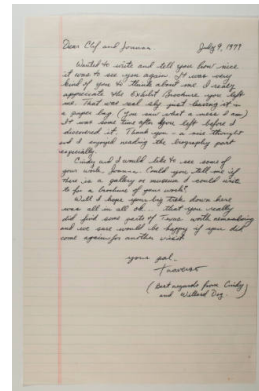 Dear Clif and Joanna July 9, 1979
Wanted to write and tell you how nice
it was to see you again. It was very
kind of you to think about me. I really
appreciate the Exhibit Brochure you left
me. That was real sly just leaving it in
a paper bag (you saw what a mess I am)
It was some time after you left before I
discovered it. Thank you - a nice thought
and I enjoyed reading the biography part
especially.
Cindy and I would like to see some of
your work, Joanna. Could you tell me if
there is a gallery or museum I could write
to for a brochure of your work?
Well I hope your big trek down here
was all in all ok. that you really
did find some parts of Texas worth remembering
and we sure would be happy if you did
come again for another visit.
your pal,
(best regards from Cindy
and Willard Dog.)